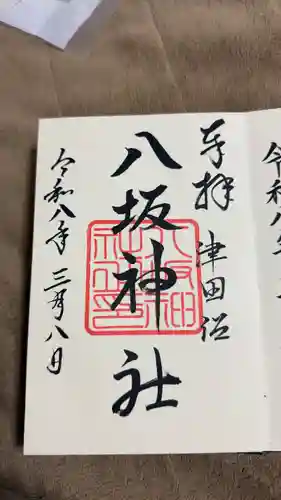 奉拝 津田沼
八坂神社
令和八年 三月八日
令和八年